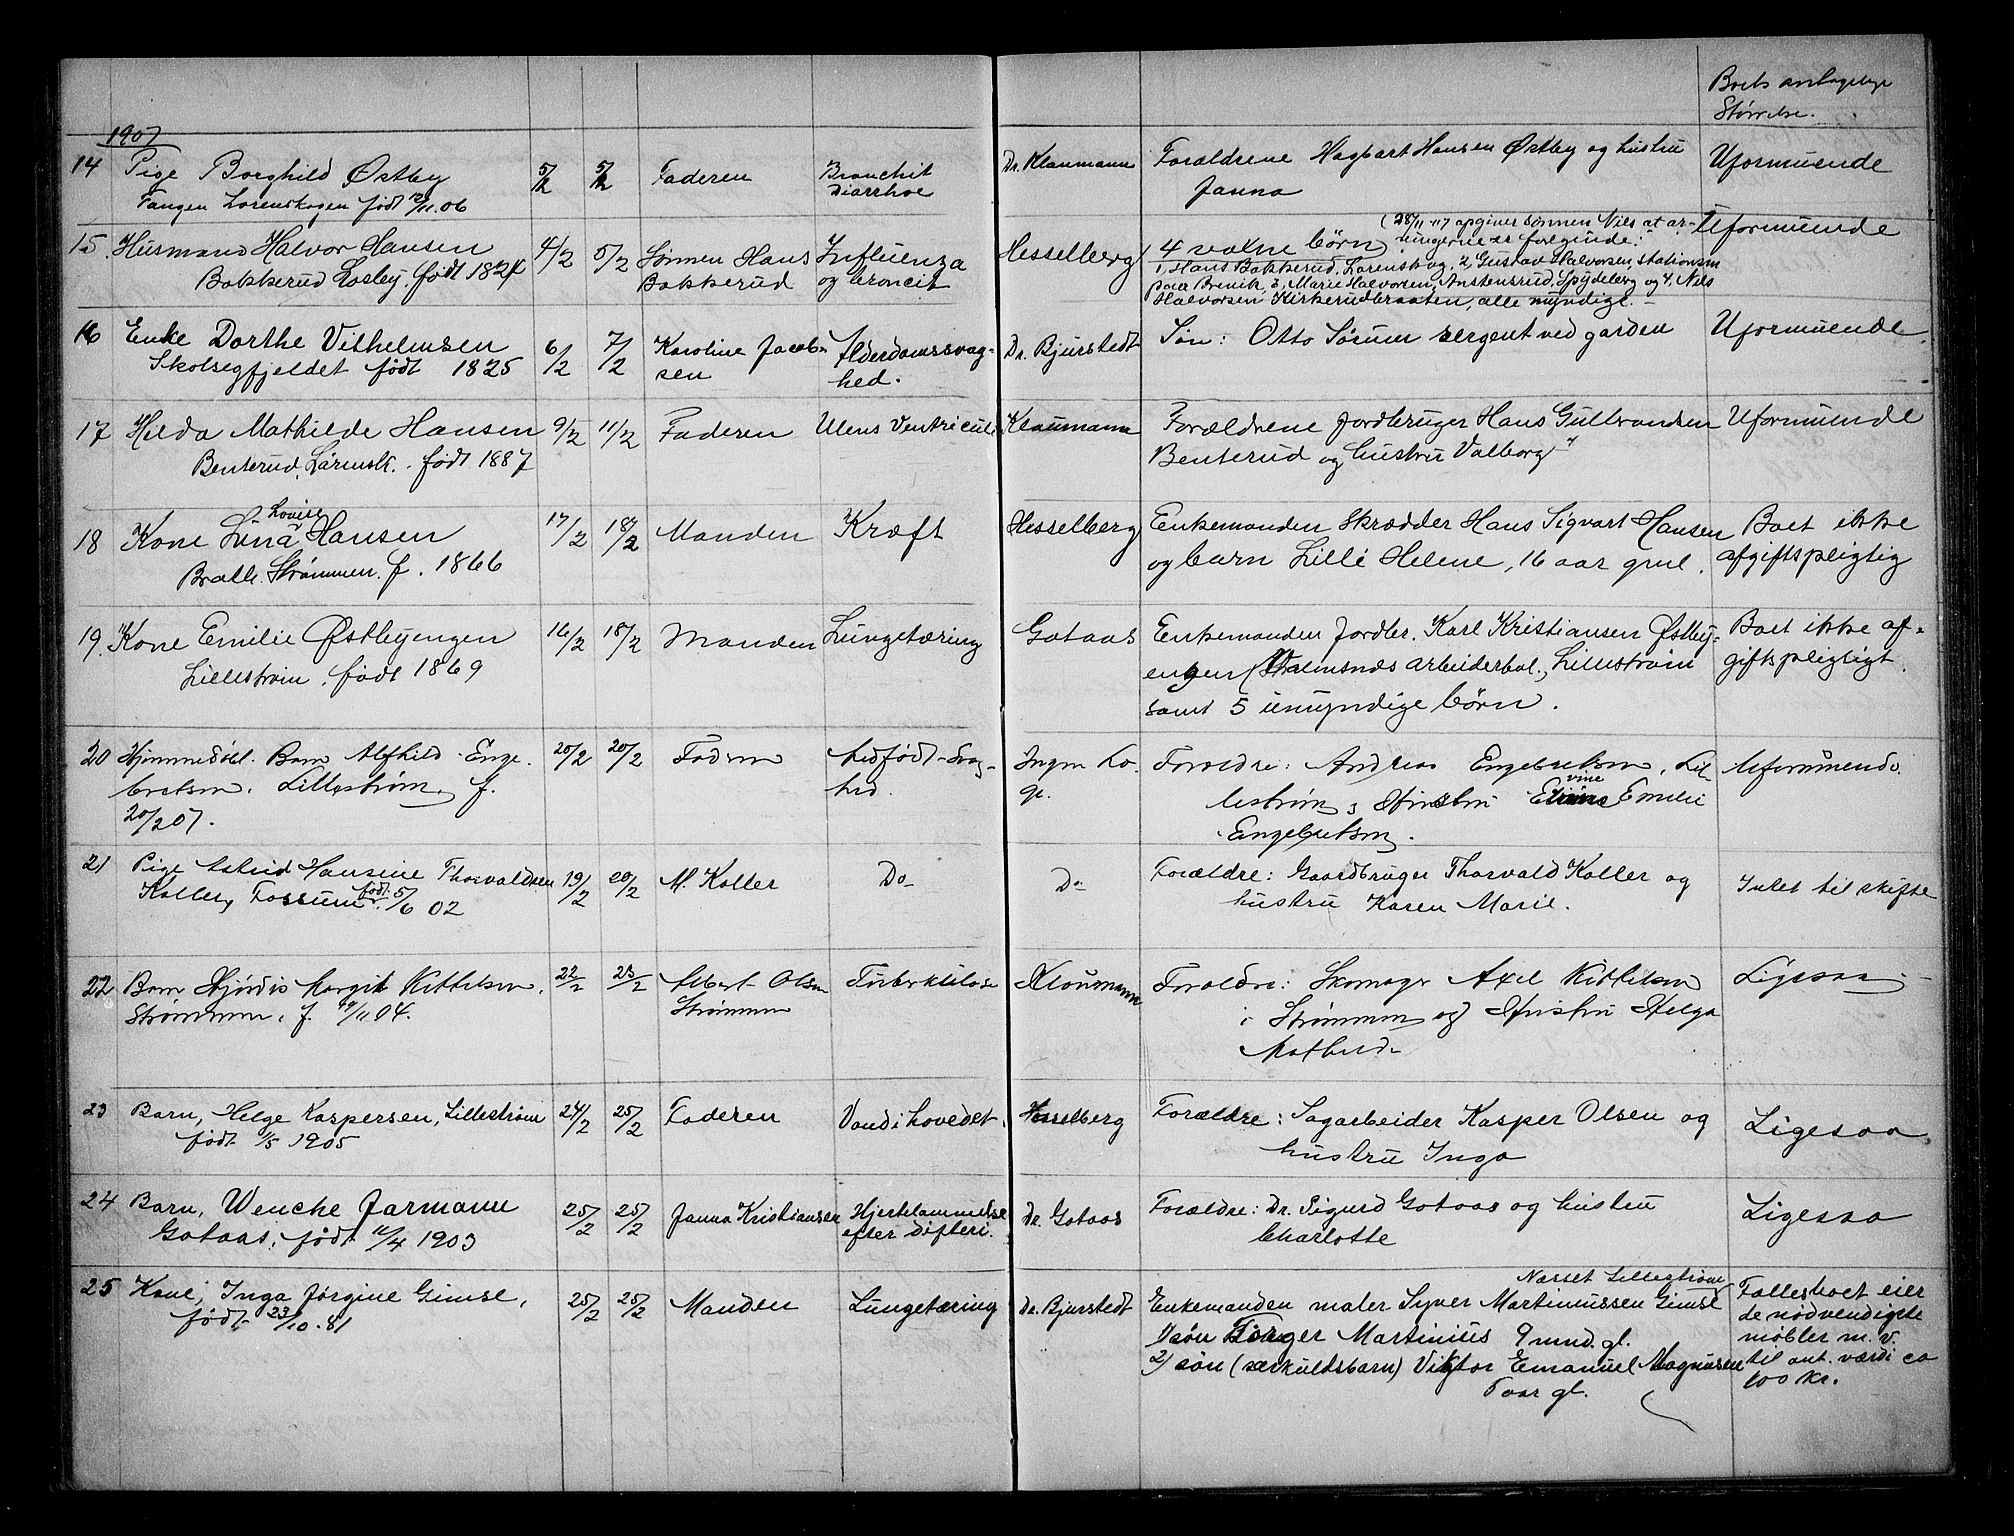 Boets antagelige
Størrelse.
1907
14 Pige Borghild Østby 5/2 5/2 Faderen Bronchit Dr. Klaumann Forældrene Hagbart Hansen Østby og hustru Uformuende
Fangen Lørenskogen født 12/11.06 Diarrhoe Janna
15. Husmand Halvor Hansen 4/2 5/2 Sønnen Hans Influenza Hesselberg 4 voxne børn (28/11-17 opgiver sønnen Nils at ar- Uformuende
vingerne er følgende:
Bakkerud Losby, født 1824 Bakkerud og broncit 1, Hans Bakkerud, Lørenskog, 2, Gustav Halvorsen, stationsm
paa Brevik 3, Marie Halvorsen, Anstensrud, Spydeberg og 4, Nils
Halvorsen Kirkerudbraaten, alle myndige.
16 Enke Dorthe Vilhelmsen 6/2 7/2 Karoline Jacob- Alderdomssvag- Dr. Bjurstedt Søn: Otto Sørum sergent ved garden Uformuende.
Skolsegfjeldet født 1825 sen hed.
17 Hilda Mathilde Hansen 9/2 11/2 Faderen Ulcus Ventriculi Klaumann Forældrene Jordbruger Hans Gulbrandsen Uformuende
Benterud, Lørensk. født 1887 Benterud og hustru Valborg
18 Kone Lina Lovise Hansen 17/2 18/2 Manden Kræft Hesselberg Enkemanden Skrædder Hans Sigvart Hansen Boet ikke
Bratli. Strømmen. f. 1866 og barn Lilli Helene, 16 aar gml. afgiftspligtig
19. Kone Emilie Østbyengen 16/2 18/2 Manden Lungetæring Gotaas Enkemanden Jordbr. Karl Kristiansen Østby- Boet ikke af-
Lillestrøm. født 1869 engen ( arbeiderbol., Lillestrøm giftspligtigt.
samt 5 umyndige børn.
20 Hjemmedøbt Barn Alfhild Enge- 20/2 20/2 Faderen Medfødt Svag- Ingen Læ- Forældre: Andreas Engebretsen, Lil- Uformuende.
bretsen. Lillestrøm, f. hed. ge. lestrøm, Hustru Elvine Emilie
20/2 07. Engebretsen.
21 Pige Astrid Hansine Thorvaldsen 19/2 20/2 M. Koller Do Do Forældre: Gaardbruger Thorvald Koller og Intet til skifte
Koller, Fossum født 5/6 02 hustru Karen Marie.
22 Barn Hjørdis Margit Kittilsen, 22/2 23/2 Albert Olsen Tuberkulose Klaumann Forældre: Skomager Axel Kittilsen Ligesaa
Strømmen, f. 19/11 04. Strømmen i Strømmen og Hustru Helga
Mathilde
23 Barn, Helge Kaspersen, Lillestrøm 24/2 25/2 Faderen Vand i hovedet. Hesselberg Forældre: Sagarbeider Kasper Olsen og Ligesaa.
født 1/5 1905 hustru Inga
24 Barn, Wenche Jarmann 25/2 25/2 Janna Kristiansen Hjertelammelse Dr. Gotaas Forældre: Dr. Sigurd Gotaas og hustru Ligesaa
Gotaas, født 11/4 1903 efter difteri. Charlotte
25 Kone, Inga Jørgine Gimse, 25/2 25/2 Manden Lungetæring Dr. Bjurstedt Enkemanden maler Syver Martinussen Gimse Næsset Lillestrøm Fællesboet eier
født 23/10.81 1) søn Birger Martinius 9 mnd. gl. de nødvendigste
møbler m. v.
2) søn (særkuldsbarn) Viktor Emanuel Magnusen til ant. værdi ca
7 aar gl. 100 kr.